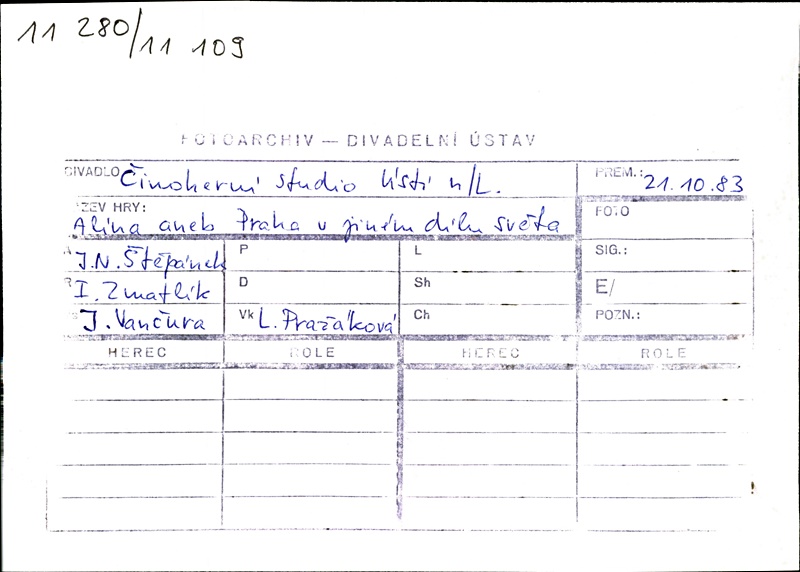 11 280/11 109
FOTOARCHIV — DIVADELNÍ ÚSTAV
DIVADLO Činoherní studio Ústí n/L. PREM.: 21.10.83
NÁZEV HRY: FOTO
Alina aneb Praha v jiném dílu světa
A J.N. Štěpánek P L SIG.:
R I. Zmatlík D Sh E/
S J. Vančura Vk L. Pražáková Ch POZN.:
HEREC ROLE HEREC ROLE